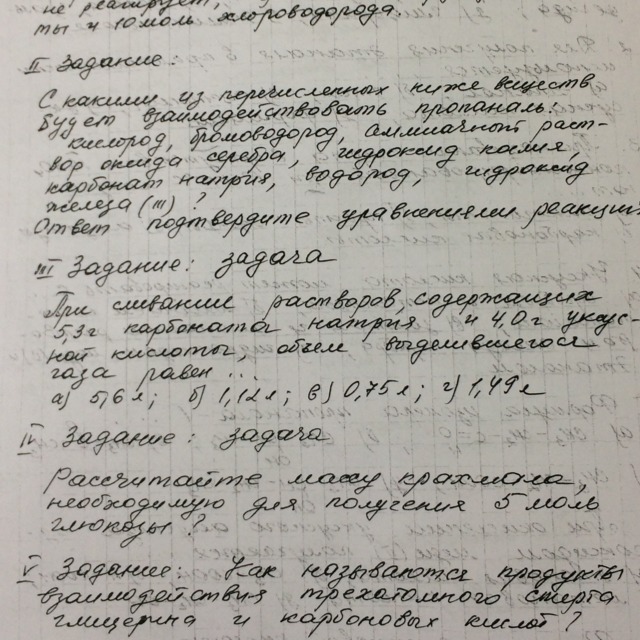 не реагирует,
ты и 10 моль хлороводорода.
II Задание:
С какими из перечисленных ниже веществ
будет взаимодействовать пропаналь:
кислород, бромоводород, аммиачный раст-
вор оксида серебра, гидроксид калия,
карбонат натрия, водород, гидроксид
железа (III) ?
Ответ подтвердите уравнениями реакций.
III Задание: задача
При сливании растворов, содержащих
5,3 г карбоната натрия и 4,0 г уксус-
ной кислоты, объем выделившегося
газа равен ...
а) 5,6 л; б) 1,12 л; в) 0,75 л; г) 1,49 л
IV Задание: задача
Рассчитайте массу крахмала,
необходимую для получения 5 моль
глюкозы ?
V Задание: Как называются продукты
взаимодействия трехатомного спирта
глицерина и карбоновых кислот ?